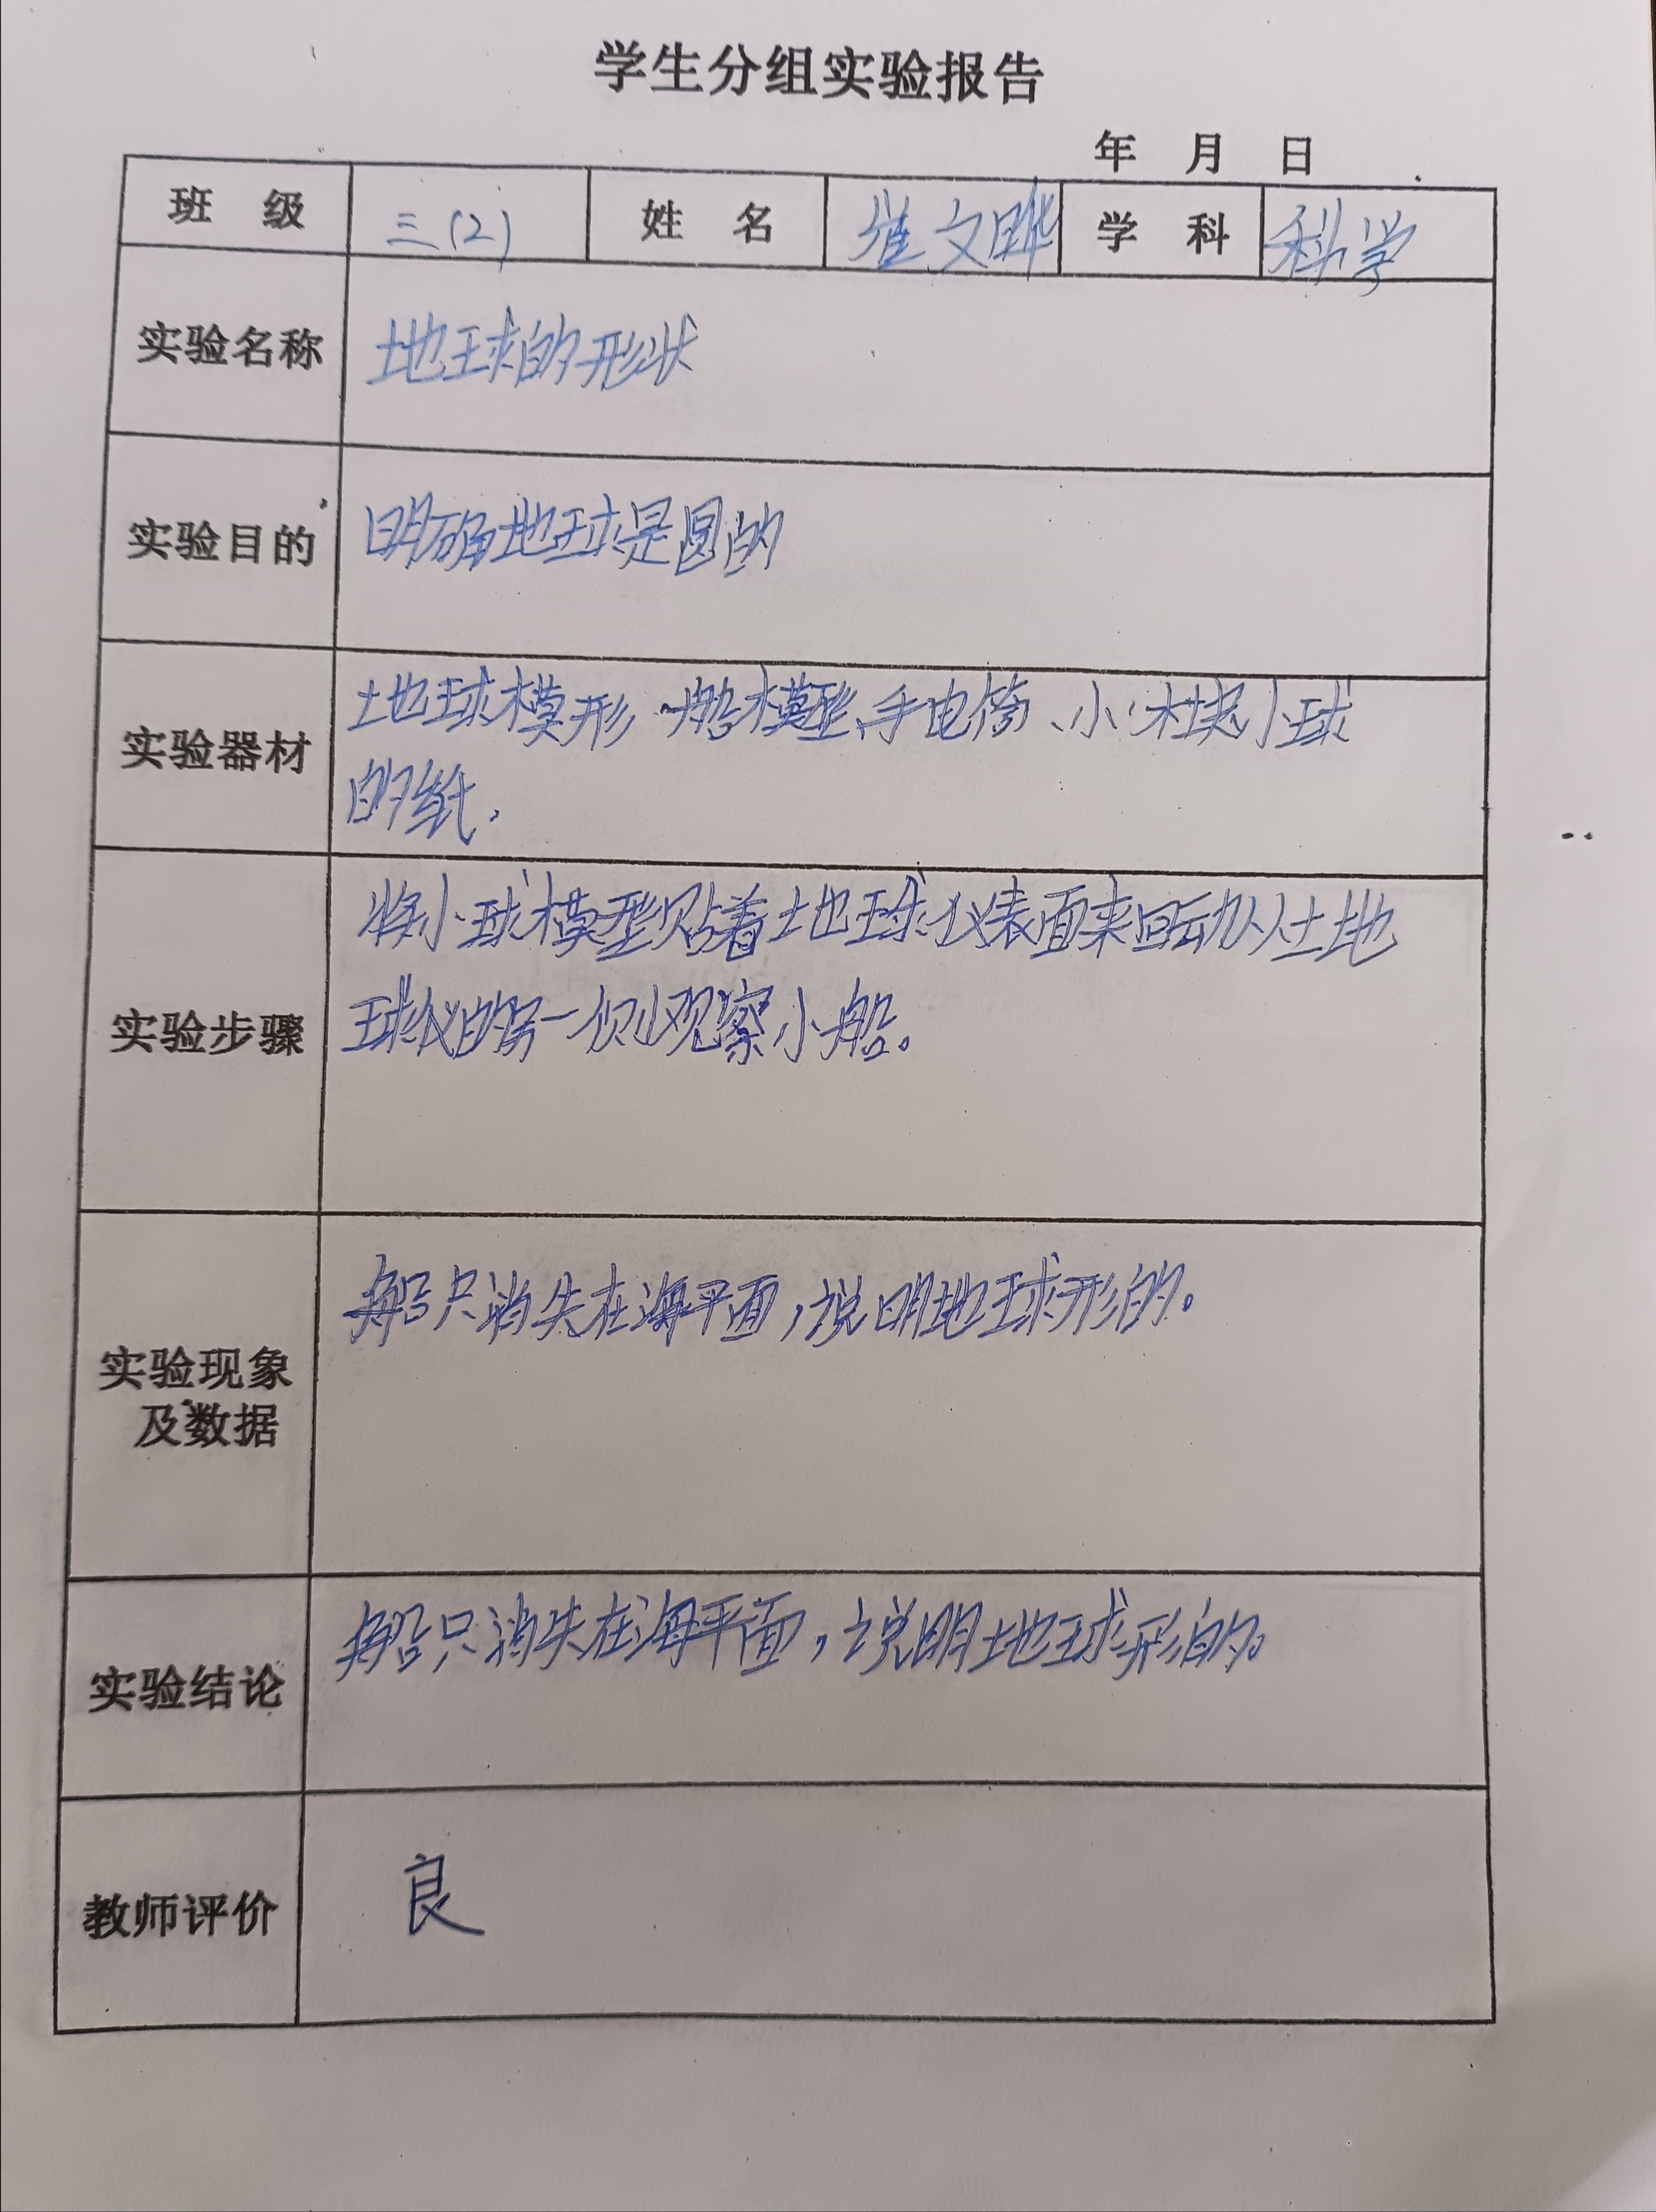 学生分组实验报告
年 月 日
班 级 三(2) 姓 名 崔文晔 学 科 科学
实验名称 地球的形状
实验目的 明确地球是圆的
实验器材 地球模形 船模型、手电筒、小木块小球
的纸.
实验步骤 将小球模型贴着地球仪表面来回动从土地
球仪的另一侧观察小船。
实验现象
及数据 船只消失在海平面,说明地球形的。
实验结论 船只消失在海平面,说明地球形的。
教师评价 良